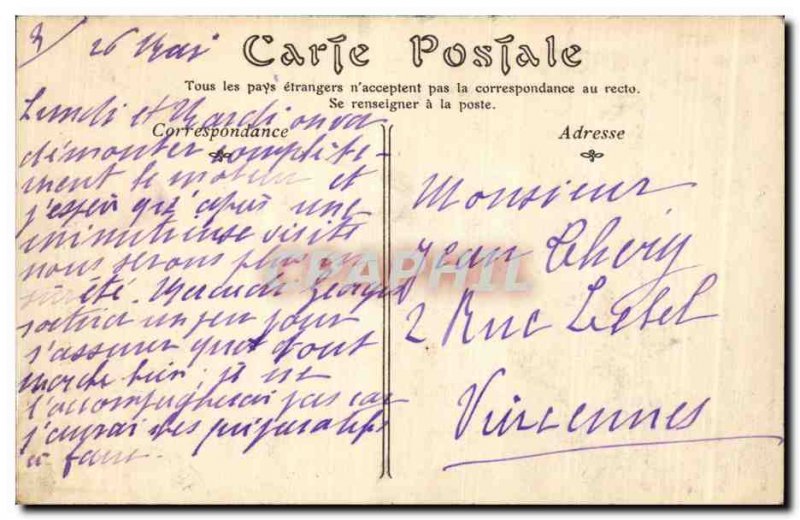 3/ 26 Mai
Carte Postale
Tous les pays étrangers n'acceptent pas la correspondance au recto.
Se renseigner à la poste.
Correspondance
Lundi et Mardi on va
démonter complète-
ment le moteur et
j'espère qu'après une
minutieuse visite
nous serons plus en
sûreté. Georges
un peu pour
s'assurer que tout
marche bien; je ne
l'accompagnerai pas car
j'aurai des préparatifs
à faire.
Adresse
Monsieur
Jean Thery
2 Rue Lebel
Vincennes
CPAPHIL